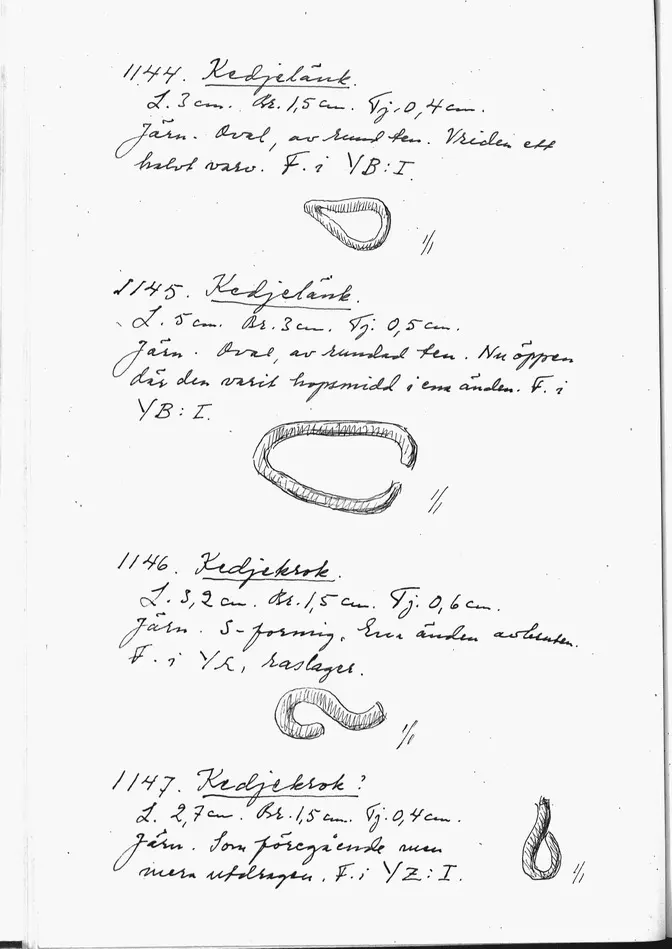 1144. Kedjelänk.
L. 3 cm. Br. 1,5 cm. Tj. 0,4 cm.
Järn. Oval, av rund ten. Vriden ett
halvt varv. F. i YB:I.
1/1
1145. Kedjelänk.
L. 5 cm. Br. 3 cm. Tj. 0,5 cm.
Järn. Oval, av rundad ten. Nu öppen
där den varit hopsmidd i ena änden. F. i
YB:I.
1/1
1146. Kedjekrok.
L. 3,2 cm. Br. 1,5 cm. Tj. 0,6 cm.
Järn. S-formig. Ena änden avbruten.
F. i raslager.
1/1
1147. Kedjekrok?
L. 2,7 cm. Br. 1,5 cm. Tj. 0,4 cm.
Järn. Som föregående men
mera utdragen. F. i YZ:I.
1/1